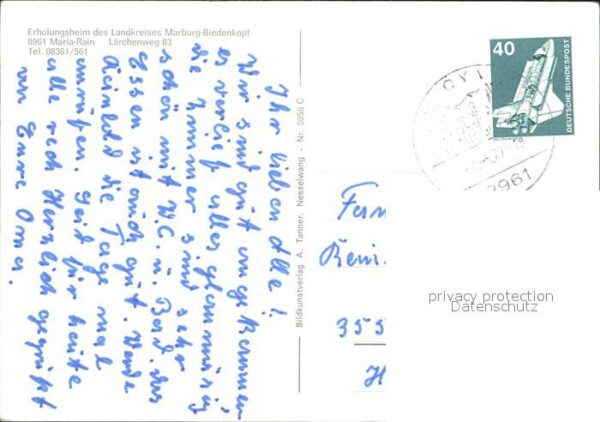 Erholungsheim des Landkreises Marburg-Biedenkopf
8961 Maria-Rain Lärchenweg 83
Tel. 08361/561
Ihr lieben alle!
Wir sind gut angekommen
es verlief alles planmäßig
die Zimmer sind sehr
schön mit W.C. u. Bad das
Essen ist auch gut. Werde
Reinhold die Tage mal
anrufen. Seid für heute
alle recht Herzlich gegrüßt
von Eurer Oma.
Bildkunstverlag A. Tanner, Nesselwang - Nr. 8856 C
40
DEUTSCHE BUNDESPOST
8961
Fam
355
privacy protection
Datenschutz